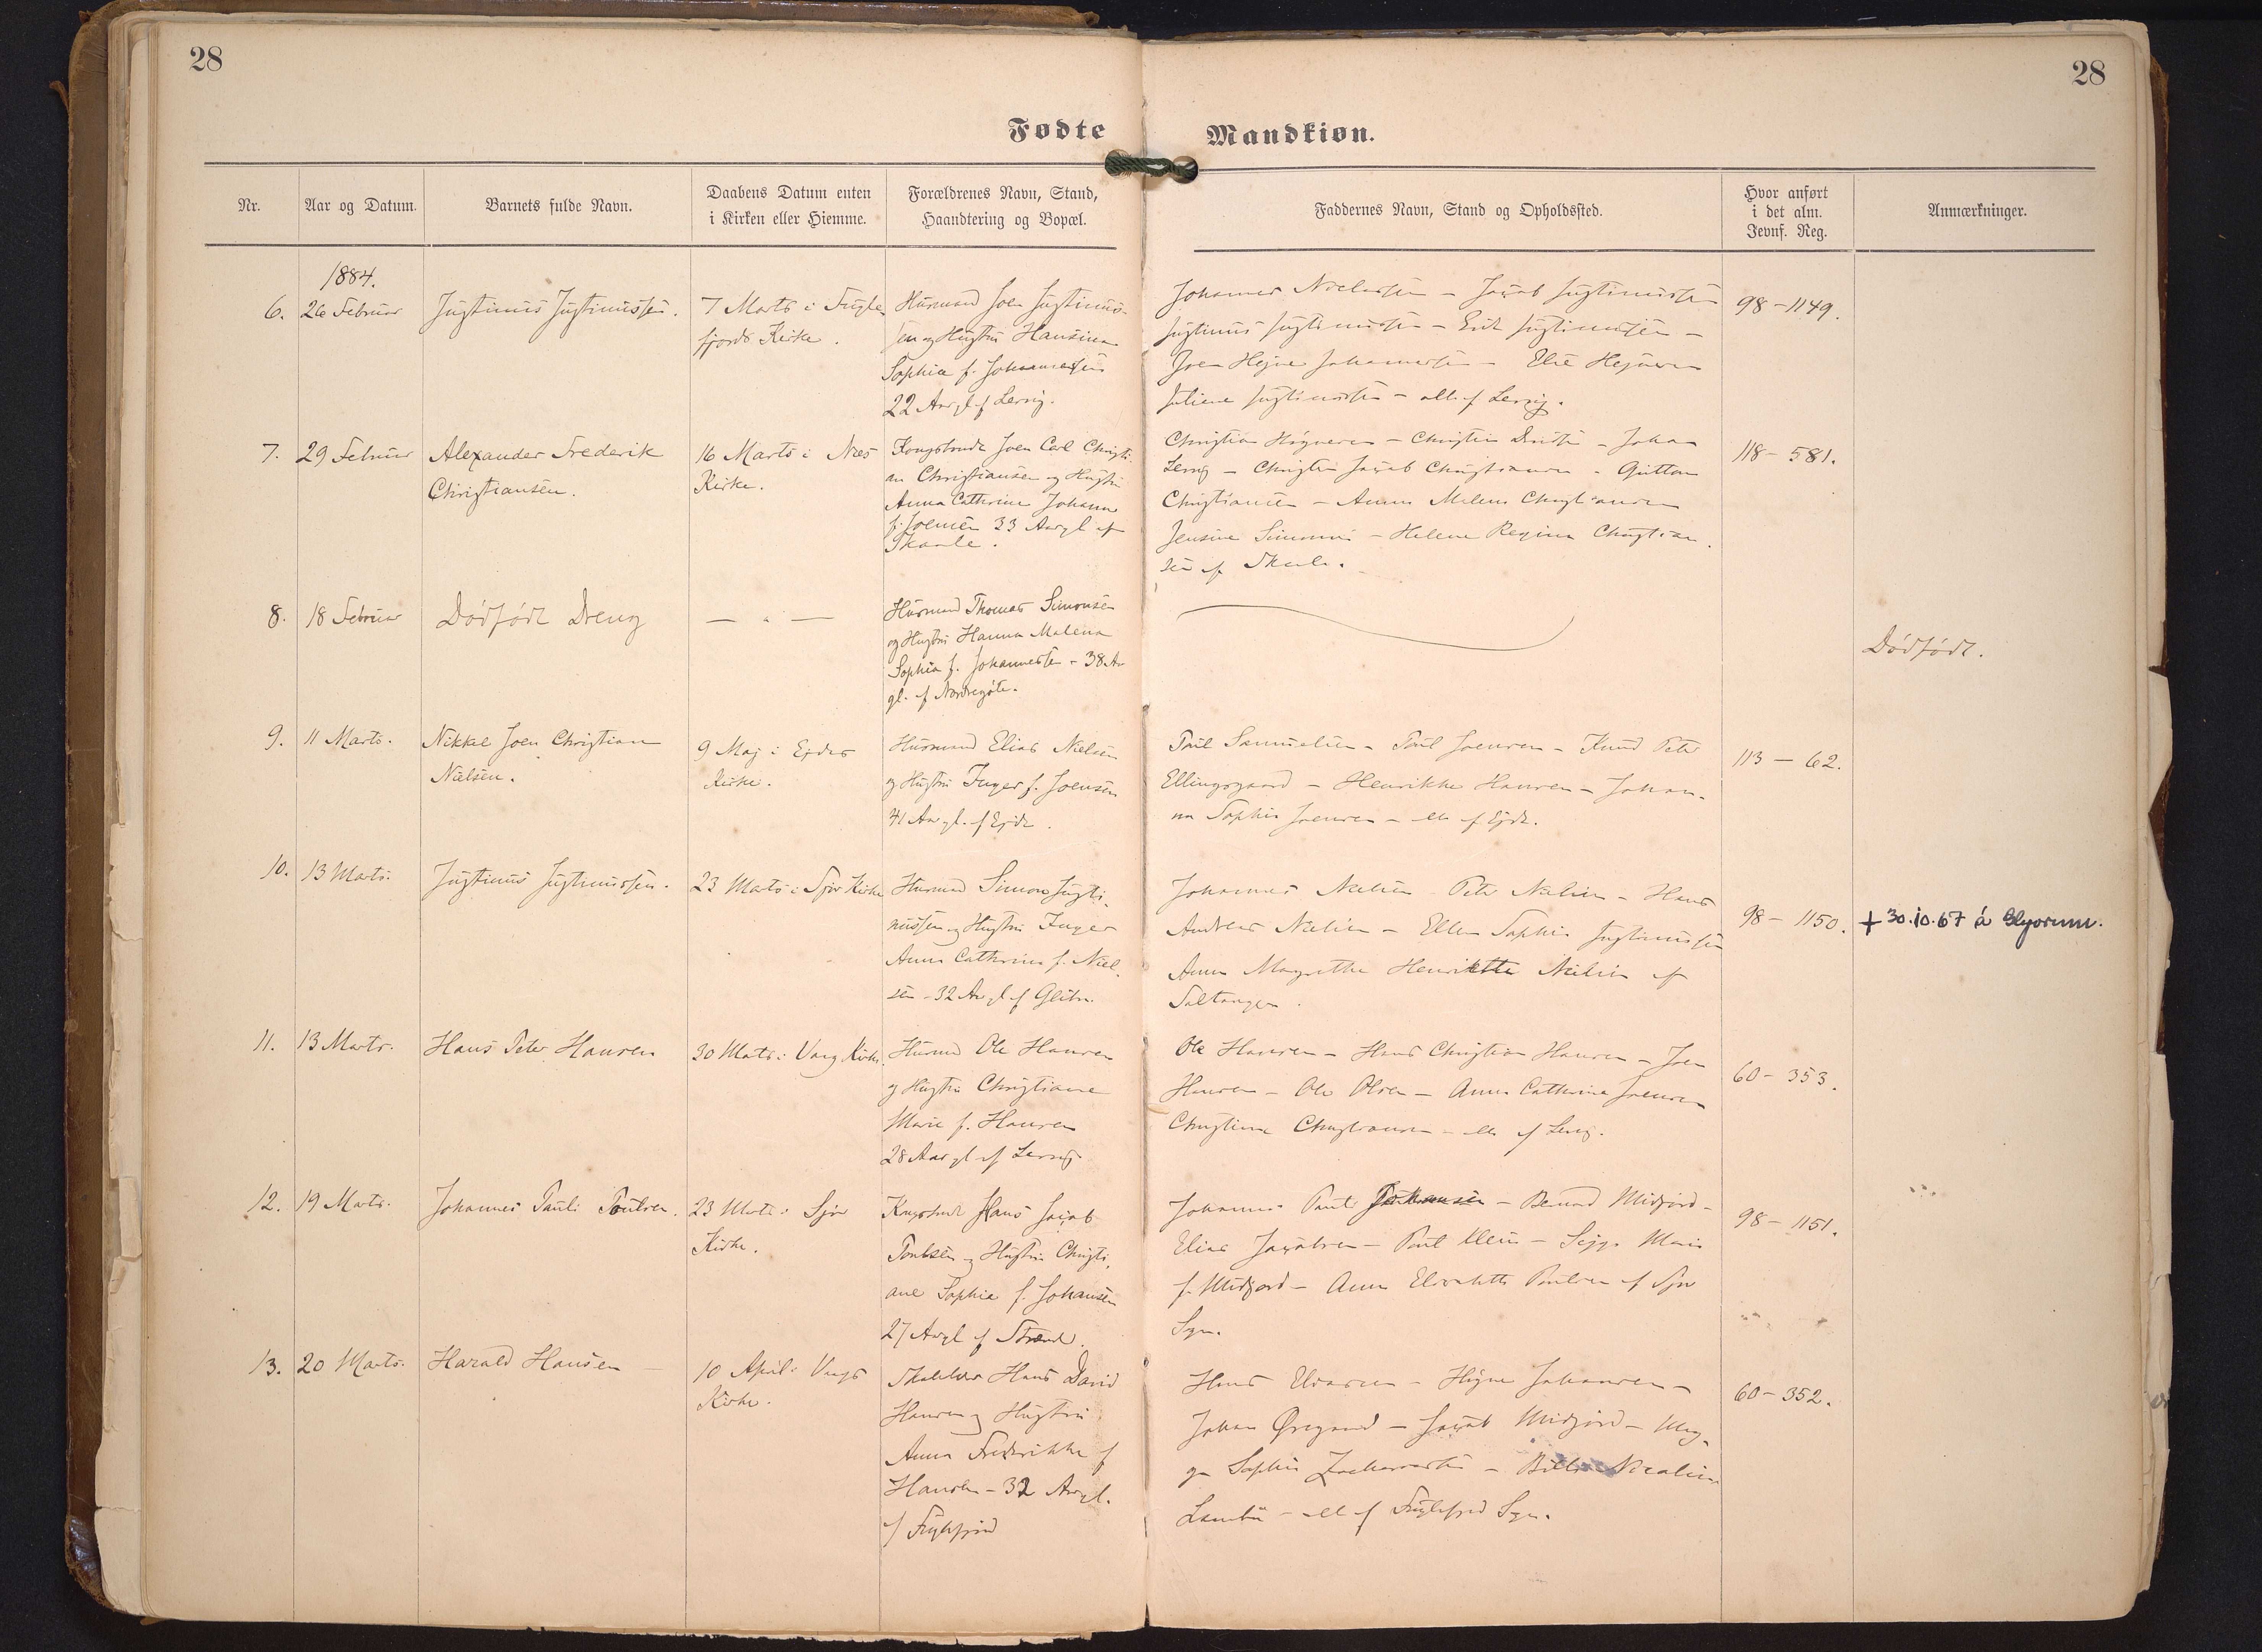 28
28
Fødte
Mandkiøn.
Nr.
Aar og Datum.
Barnets fulde Navn.
Daabens Datum enten
i Kirken eller Hiemme.
Forældrenes Navn, Stand,
Haandtering og Bopæl.
Faddernes Navn, Stand og Opholdssted.
Hvor anført
i det alm.
Jevnf. Reg.
Anmærkninger.
1884.
6.
26 Februar
Justinus Justinussen.
7 Marts i Fugle
fjords Kirke.
Husmand Joen Justinus-
sen og Hustru Hansina
Sophia f. Johannesen
22 Aar gl. af Lervig.
Johannes Nielsen - Jacob Justinussen
Justinus Justinussen - Justinussen -
Joen Højne Johannessen -
Juliane Justinussen - alle af Lervig.
98-1149.
7.
29 Februar
Alexander Frederik
Christiansen.
16 Marts i Næs
Kirke.
Kongsbonde Joen Carl Christi-
an Christiansen og Hustru
Anna Cathrine Johanne
f. Joensen 33 Aar gl. af
Skaale.
Christian Højnesen - Christian - Johan
Lervig - Christian Jacob Christiansen -
Christiansen - Anna Malene Christiansen
Jensine - Helene Regine Christian-
sen af Skaale.
118-581.
8.
18 Februar
Dødfødt Dreng
— " —
Husmand Thomas Simonsen
og Hustru Hanna Malena
Sophia f. Johannessen - 38 Aar
gl. af Nordregøte.
Dødfødt.
9.
11 Marts.
Nikkel Joen Christian
Nielsen.
9 Maj i Ejdes
Kirke.
Husmand Elias Nielsen
og Hustru Inger f. Joensen
41 Aar gl. af Ejde.
Poul Samuelsen - Poul Joensen - Knud Peter
Ellingsgaard - Henrikke Hansen - Johan-
na Sophie Joensen - alle af Ejde.
113 - 62.
10.
13 Marts.
Justinus Justinussen.
23 Marts i Sjov Kirke
Husmand Simon Justi-
nussen og Hustru Inger
Anna Cathrina f. Niel-
sen - 32 Aar gl. af
Johannes Nielsen - Peter Nielsen - Hans
Andreas Nielsen - Ellen Sophie Justinussen
Anna Magrethe Henriette Nielsen af
Saltangen.
98 - 1150.
+ 30.10.67 á Glyvrum.
11.
13 Marts.
Hans Peter Hansen
30 Marts i Vaag Kirke.
Husmand Ole Hansen
og Hustru Christiane
Marie f. Hansen
28 Aar gl. af Lervig
Ole Hansen - Hans Christian Hansen - Joen
Hansen - Ole Olsen - Anna Cathrine Joensen
Christine Christiansen - alle af Lervig.
60 - 353.
12.
19 Marts.
Johannes Pauli Poulsen.
23 Marts i Sjov
Kirke.
Kongsbonde Hans Jacob
Poulsen og Hustru Christi-
ane Sophie f. Johansen
27 Aar gl. af Strænd.
Johannes Poul Johansen - Midjord -
Elias Jacobsen - Poul - Marie
f. Midjord - Anna Elisabeth Poulsen af Sjov
Sogn.
98 - 1151.
13.
20 Marts.
Harald Hansen —
10 April i Vaags
Kirke.
Hans David
Hansen og Hustru
Anna Frederikke f.
Hansen - 32 Aar gl.
af Fuglefjord
Hans Eliasen - Højne Johansen -
Johan Øregaard - Jacob Midjord -
Sophie Zachariassen - Nicoline
Lamba - alle af Fuglefjord Sogn.
60 - 352.